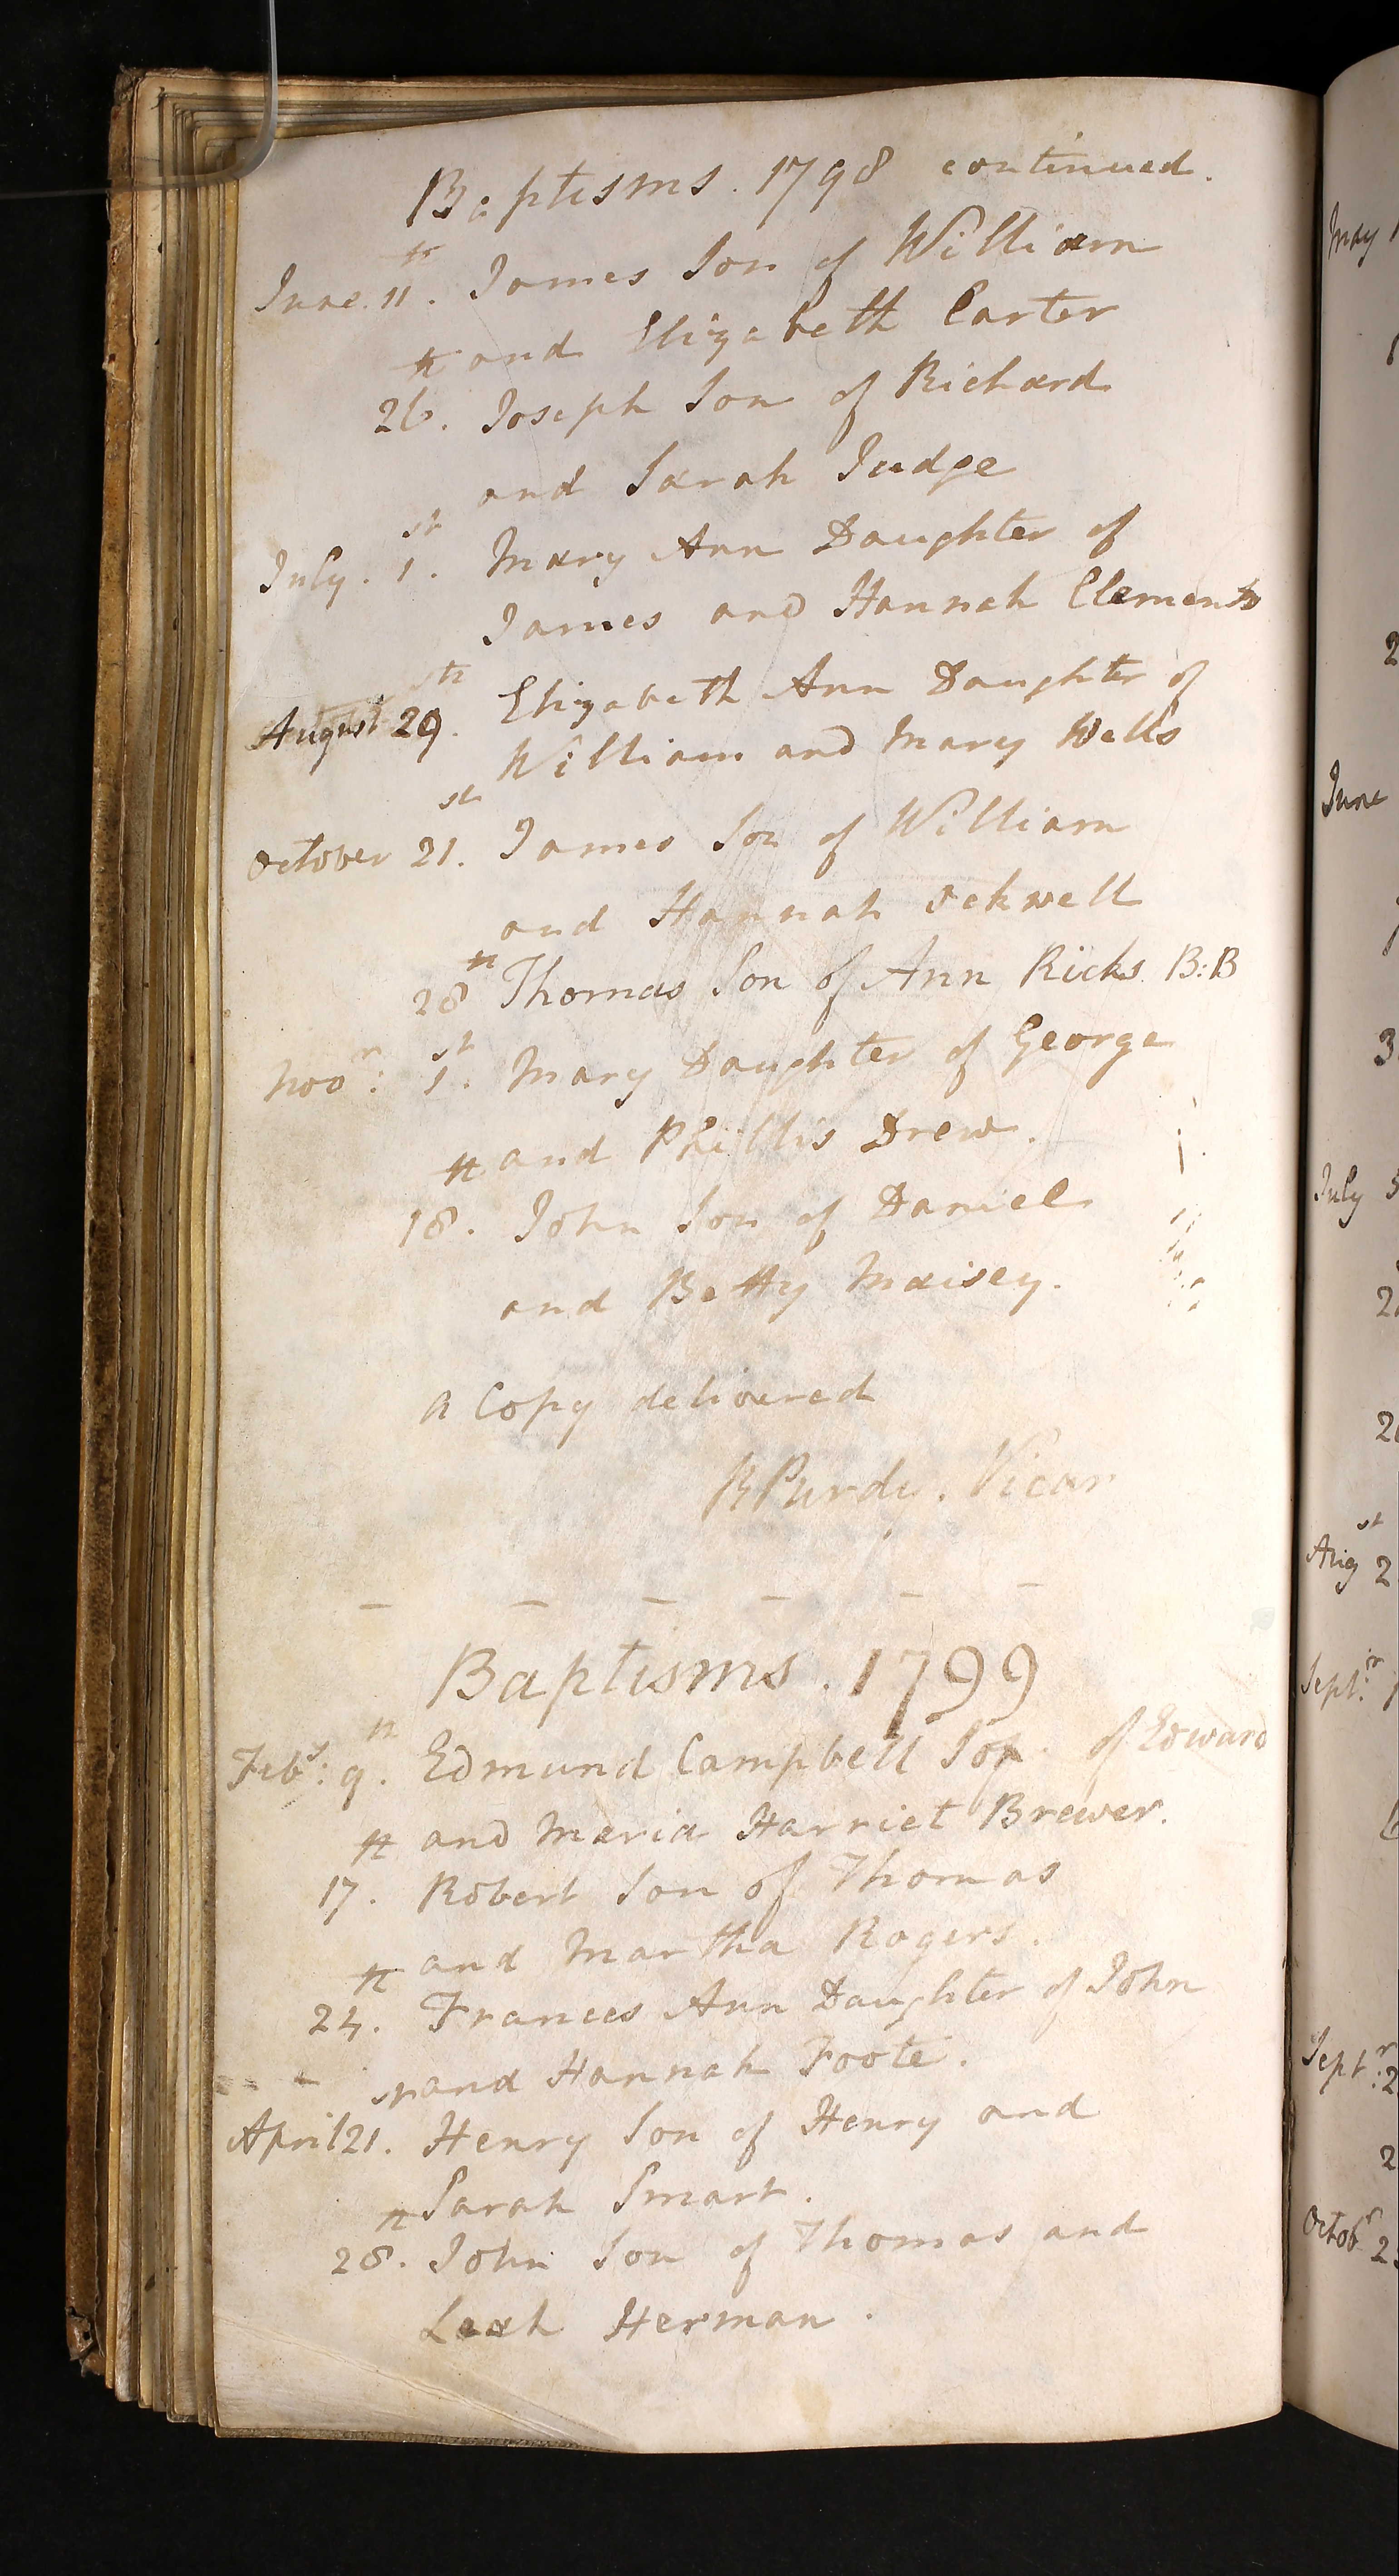 Baptisms. 1798 continued.
June. 11th. James Son of William
and Elizabeth Carter
26th. Joseph Son of Richard
and Sarah Judge
July. 1st. Mary Ann Daughter of
James and Hannah Clements
August 29th. Elizabeth Ann Daughter of
William and Mary Wells
October 21st. James Son of William
and Hannah Ockwell
28th Thomas Son of Ann Ricks. B:B
Novr: 1st. Mary Daughter of George
and Phillis Drew.
18th. John Son of Daniel
and Betty Maisey.
A Copy delivered
R Purdy. Vicar
Baptisms. 1799
Feby: 9th. Edmund Campbell Son of Edward
and Maria Harriet Brewer.
17th. Robert Son of Thomas
and Martha Rogers.
24th. Frances Ann Daughter of John
and Hannah Foote.
April 21st. Henry Son of Henry and
Sarah Smart.
28th. John Son of Thomas and
Leah Herman.
May
June
3
July 5
Augst 2
Septr:
Septr: 2
2
Octobr 2